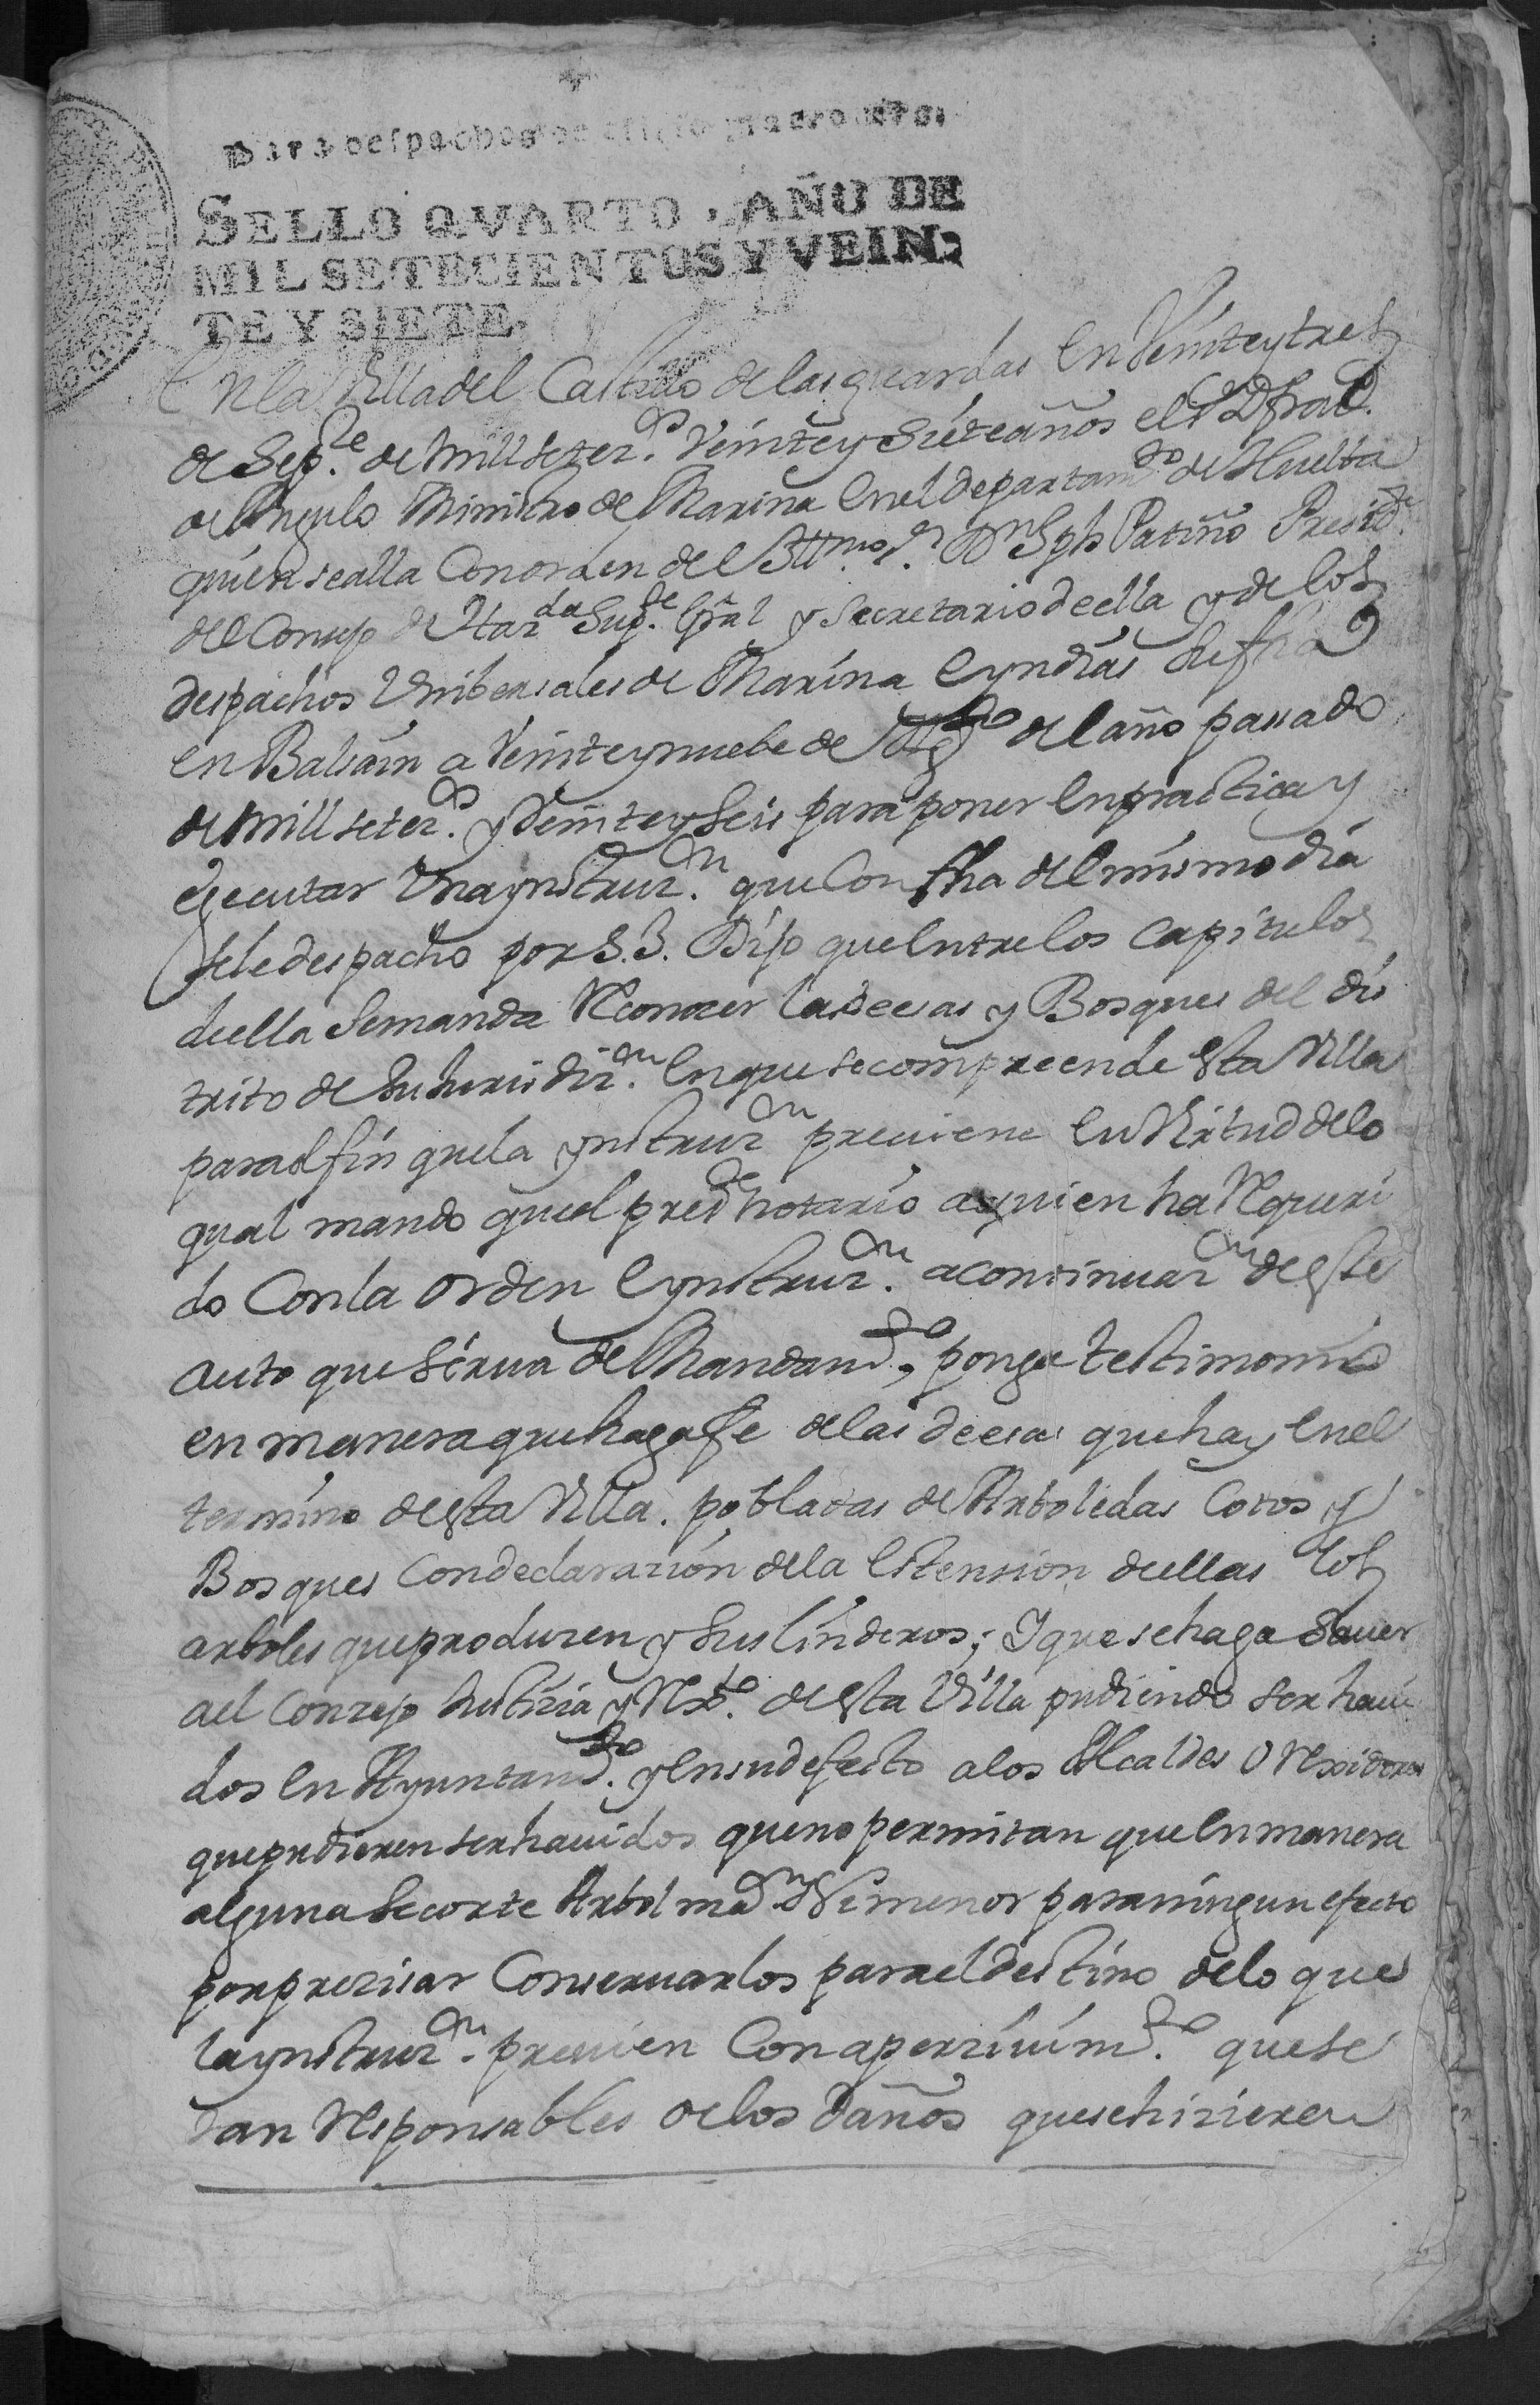 Para despachos de oficio quatro mrs.
SELLO QVARTO, AÑO DE
MIL SETECIENTOS Y VEIN-
TE Y SIETE.
En la Villa del Castillo de las guardas en Veinte y tres
de Sep.re de mill setez.s Veinte y Siete años el S.r D.n Fran.co
de Angulo Ministro de Marina en el departam.to de Huelba
quien se alla Con orden del Ill.mo S.r D.n Jph Patiño Presid.te
del Consejo de Haz.da Sup.te Gral y Secretario de ella y de los
despachos Vnibersales de Marina e yndias Su fha
en Balsain a Veinte y nuebe de Ag.to del año passado
de mill setez.s y Veinte y Seis para poner en practica y
ejecutar Vna ynstruz.n que Con fha del mismo dia
se le despacho por S.I. Dijo que entre los Capitulos
de ella Se manda Reconozer las deesas y Bosques del dis
trito de su Jurisdiz.on en que se compreende esta Villa
para el fin que la ynstruz.on preuiene en Virtud de lo
qual mando que el pres.te notario a quien ha Requeri
do Con la orden e ynstruz.on a continuaz.on de este
auto que sirua de Mandam.to ponga testimonio
en manera que haga fe de las deesas que hay en el
termino de esta Villa. pobladas de Arboledas Cotos y
Bosques Con declarazion de la estension de ellas los
arboles que produzen y sus linderos; Y que se haga sauer
al Conzejo Justizia y Rex.to de esta Villa pudiendo ser haui
dos en Ayuntam.to y en su defecto a los Alcaldes o Rexidores
que pudieren ser hauidos que no permitan que en manera
alguna se corte Arbol ma.or Ni menor para ningun efecto
por prezisar Conseruarlos para el destino de lo que
la ynstruz.on preuien Con aperziuim.to que se
ran Responsables de los daños que se hizieren